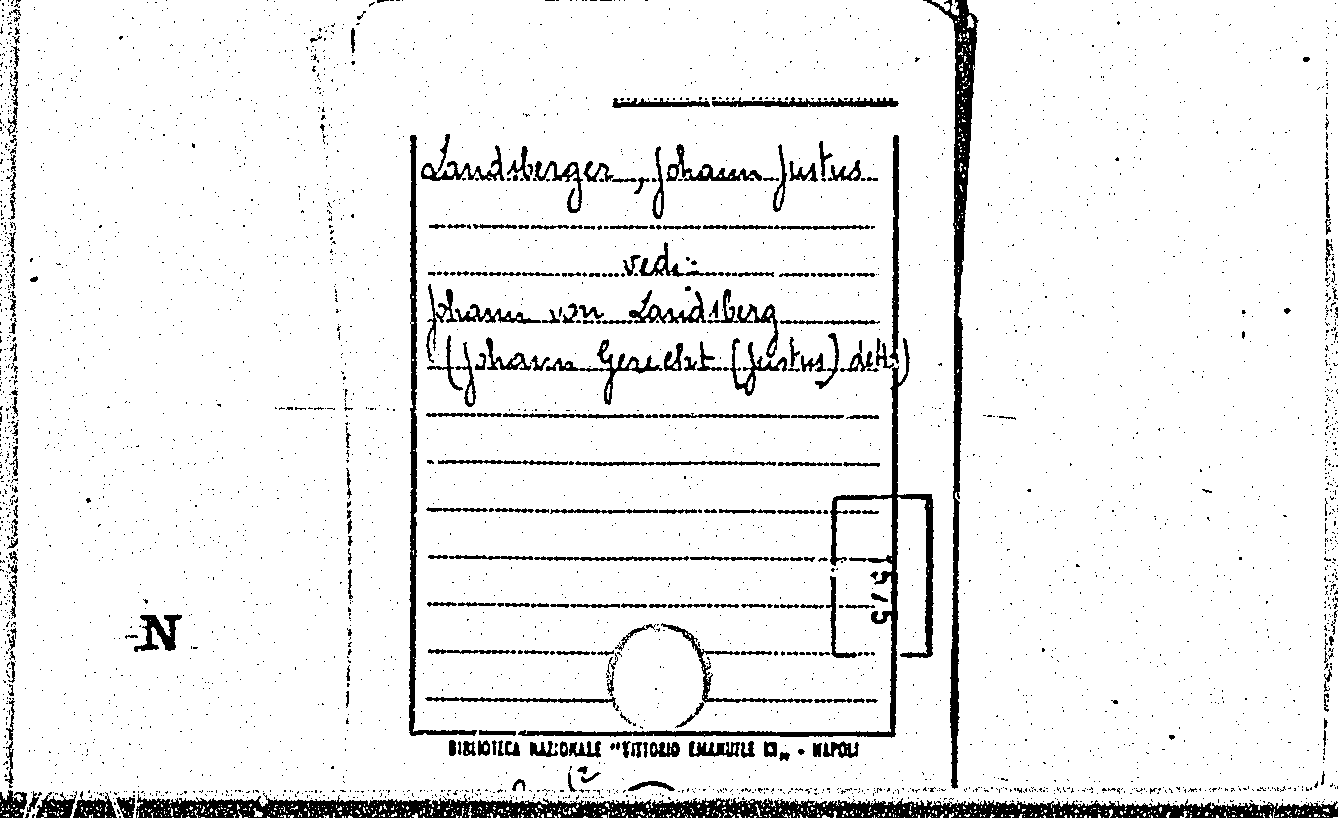 Landsberger, Johann Justus
vedi:
Johann von Landsberg
(Johann Gerecht (Justus) detto)
N
BIBLIOTECA NAZIONALE "VITTORIO EMANUELE III" - NAPOLI